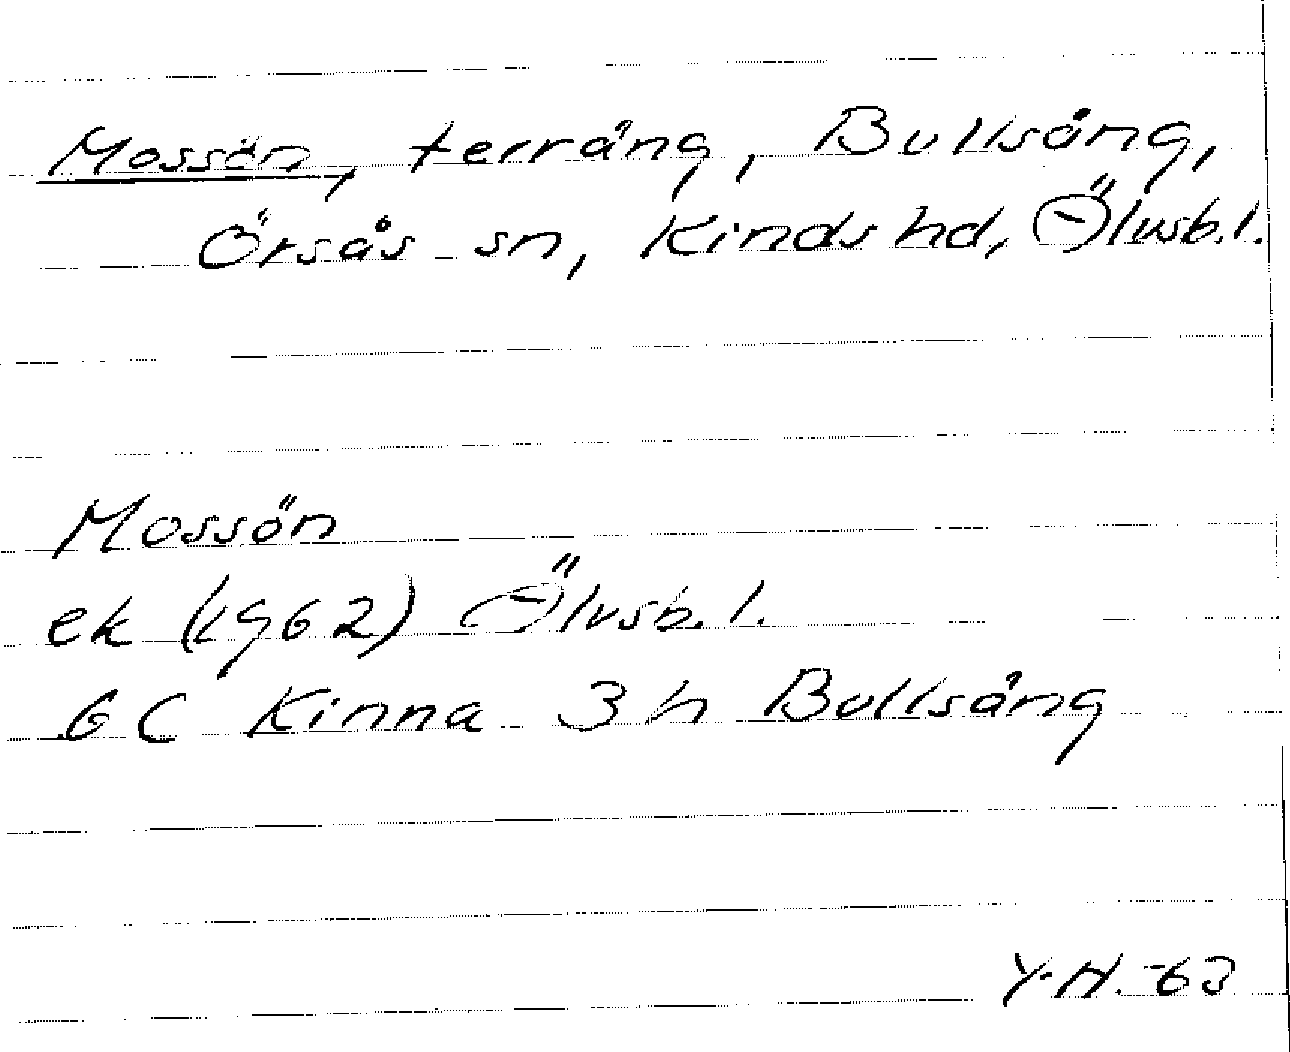 Mossön, terräng, Bullsäng,
Örsås sn, Kinds hd, Älvsb. l.
Mossön
ek (1962) Älvsb. l.
6C Kinna 3h Bullsäng
Y.H. -63